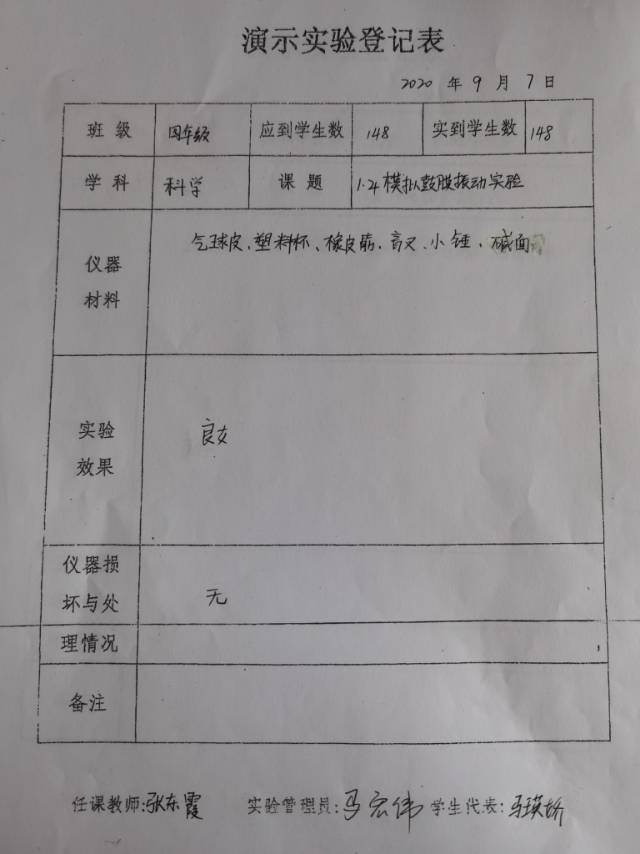 演示实验登记表
2020 年 9 月 7 日
班 级 四年级 应到学生数 148 实到学生数 148
学 科 科学 课 题 1.4模拟鼓膜振动实验
仪器
材料
气球皮、塑料杯、橡皮筋、音叉、小锤、碱面
实验
效果
良好
仪器损
坏与处
理情况
无
备注
任课教师:张东霞 实验管理员:马宏伟 学生代表:马瑛娇